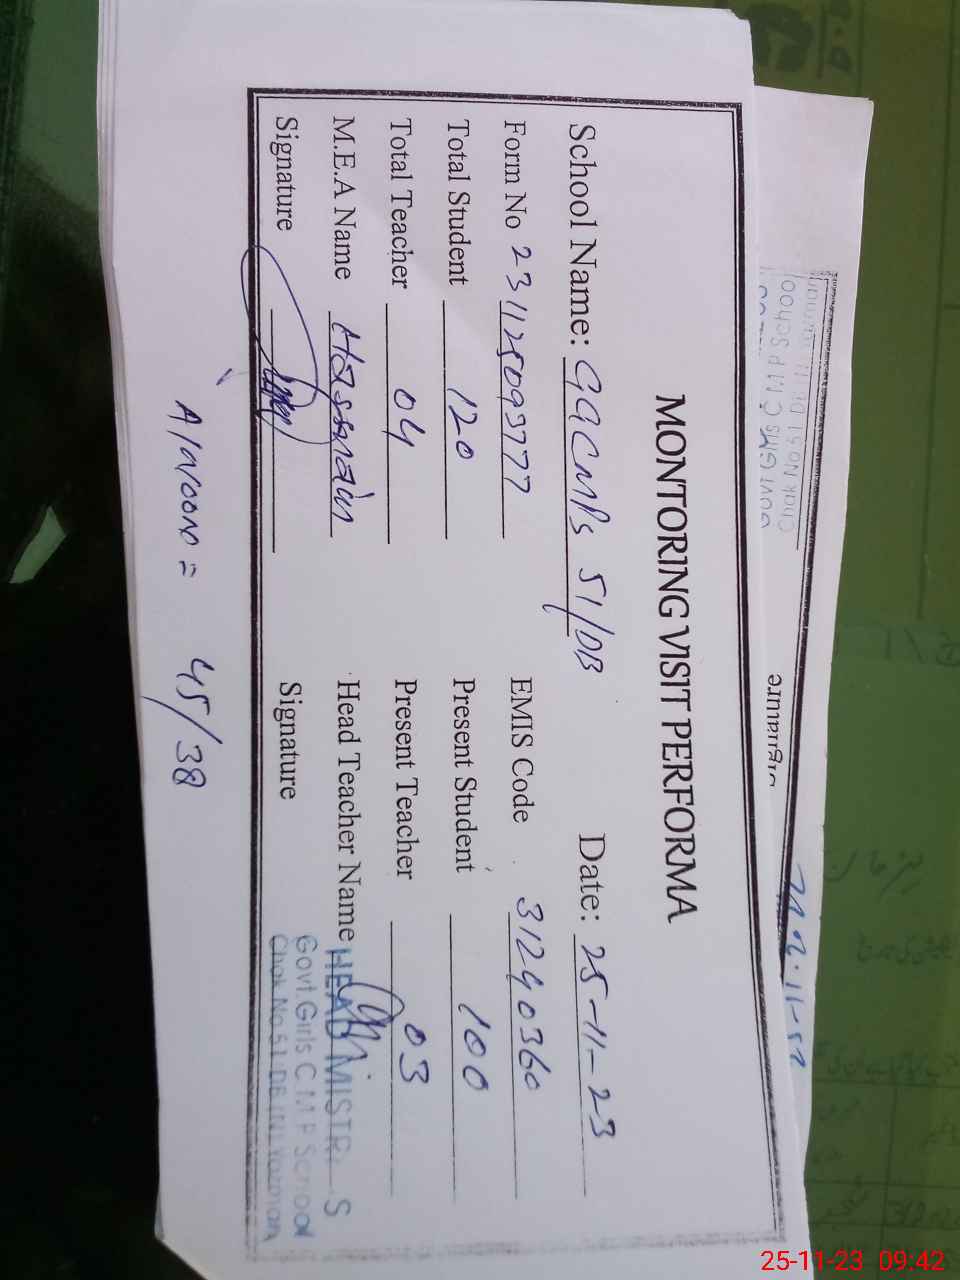 MONTORING VISIT PERFORMA
School Name: GGCMPS 51/DB Date: 25-11-23
Form No 231125093777 EMIS Code 31240360
Total Student 120 Present Student 100
Total Teacher 04 Present Teacher 03
M.E.A Name Hassnain Head Teacher Name
Signature Signature
HEAD MISTR S
Govt. Girls C.M.P School
Chak No.51 DB (N) Yazman
45/38
25-11-23 09:42